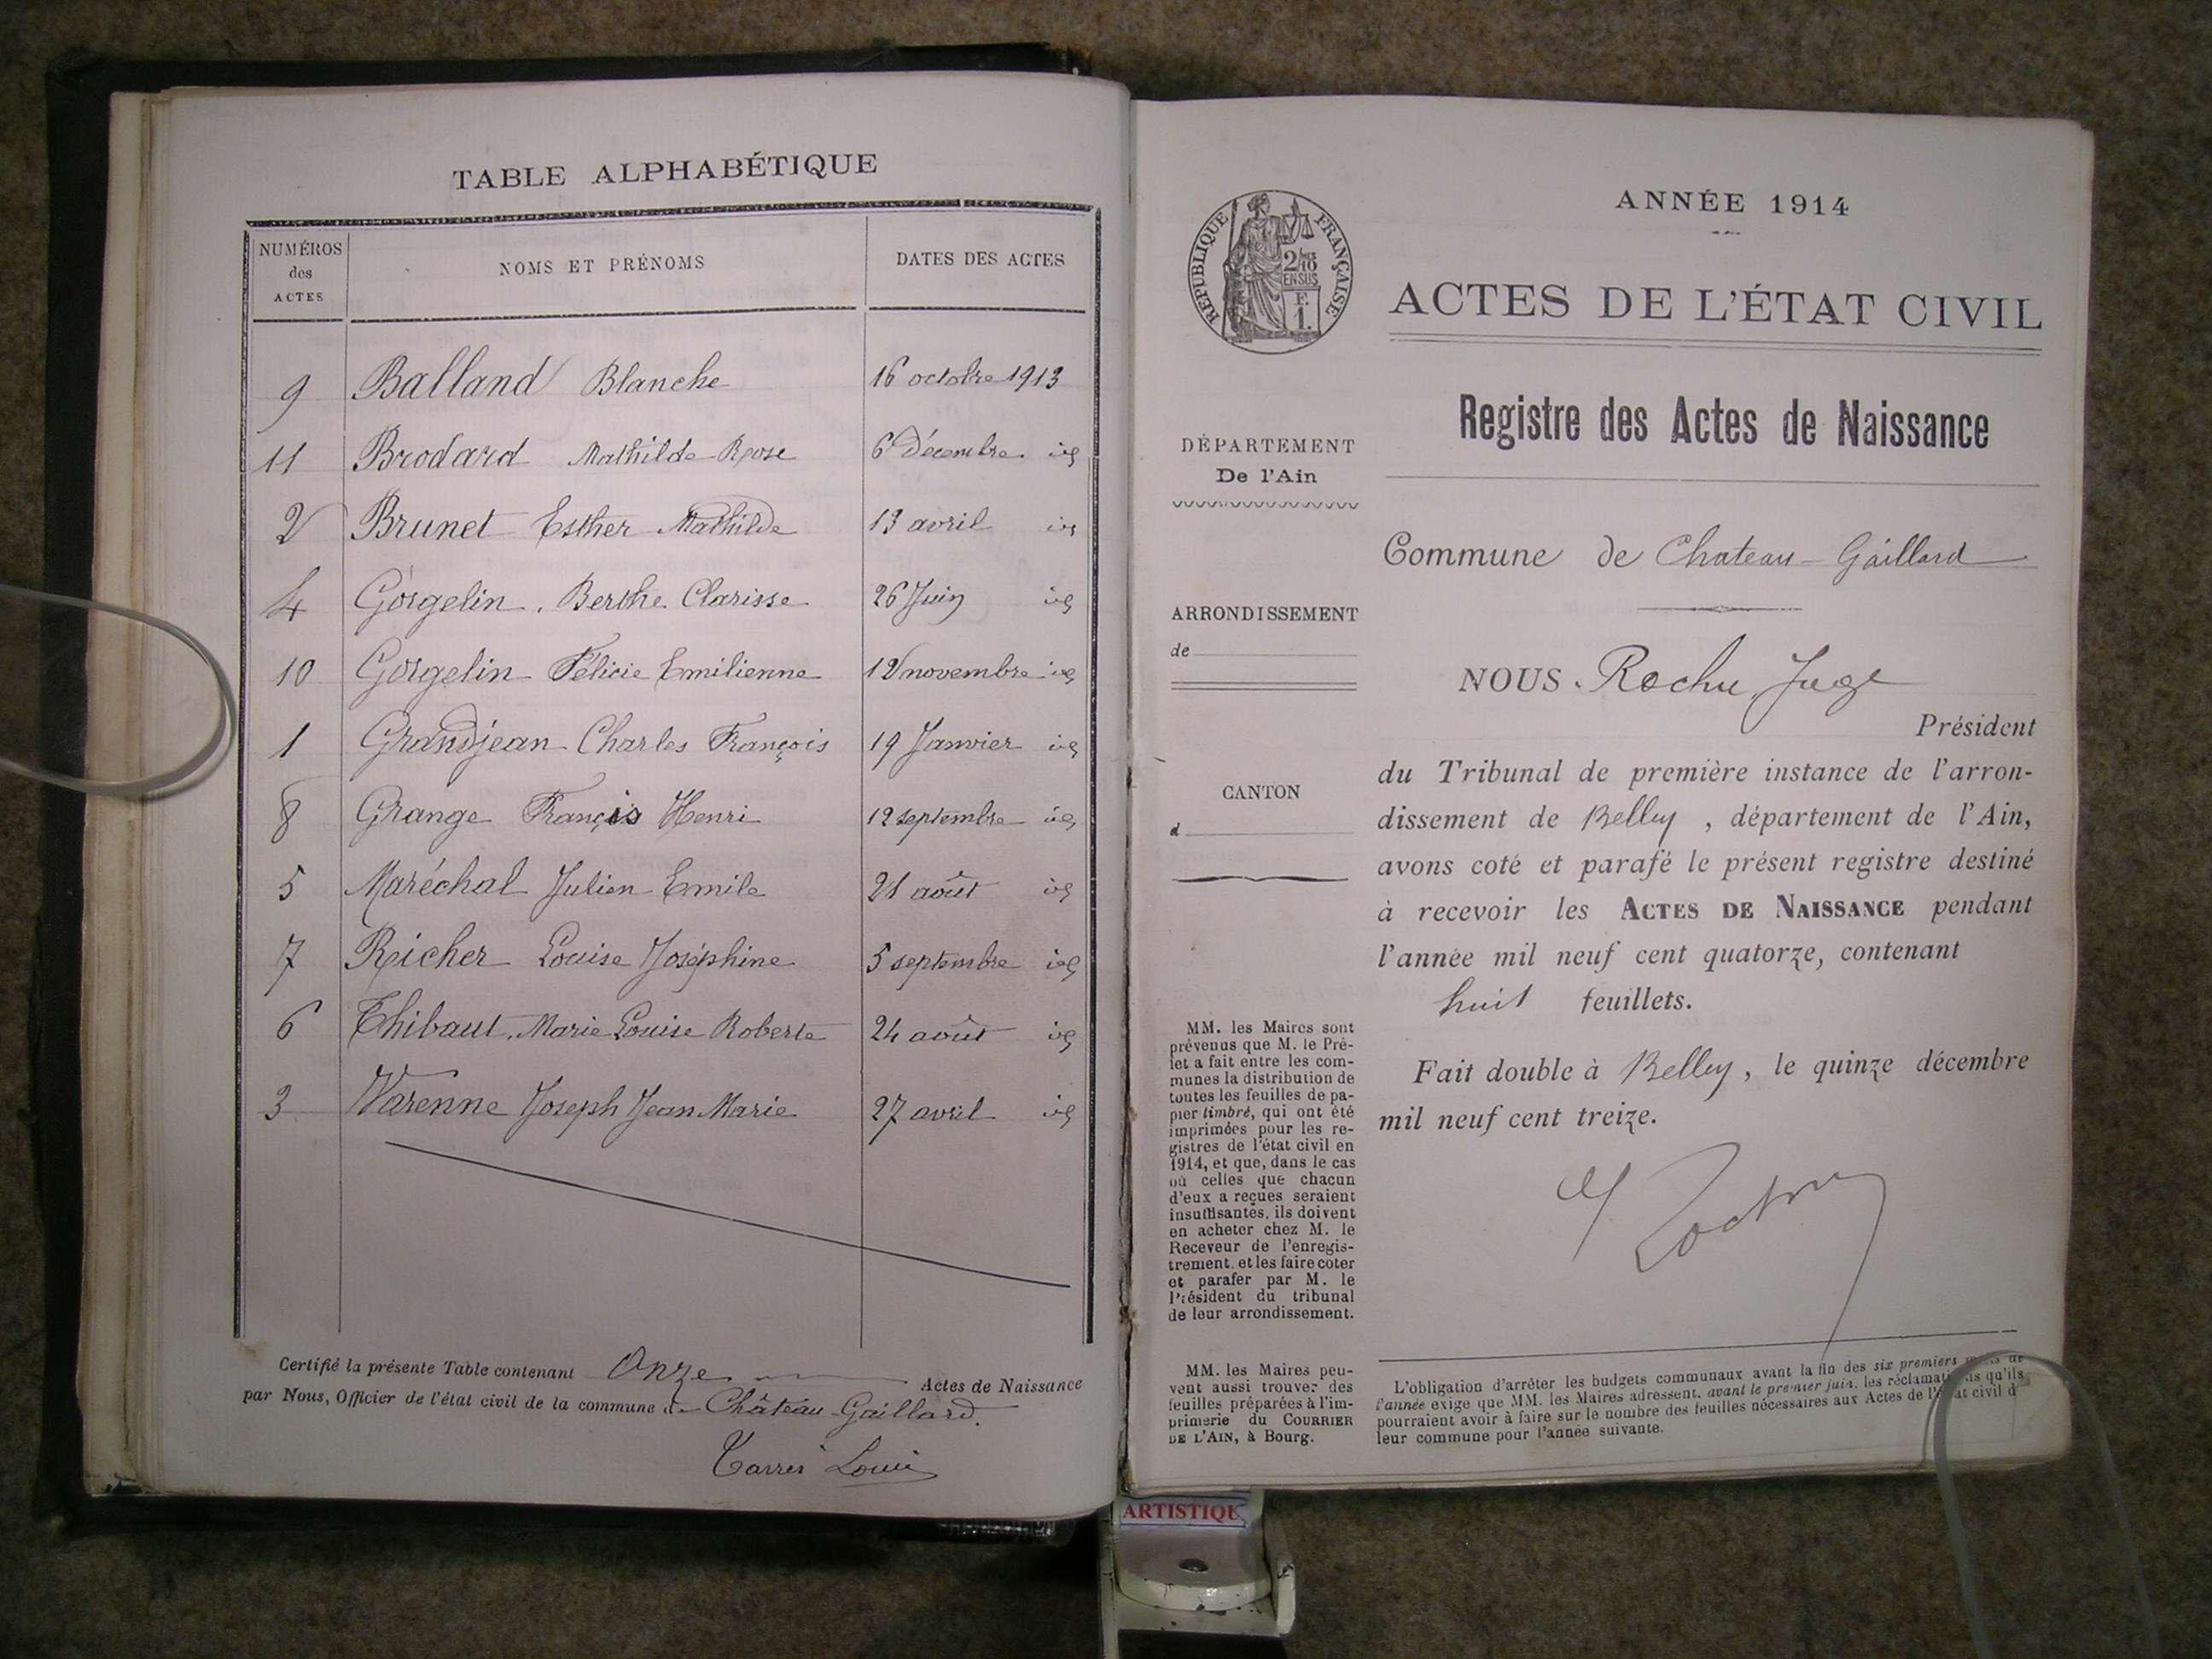 TABLE ALPHABÉTIQUE
NUMÉROS des ACTES NOMS ET PRÉNOMS DATES DES ACTES
9 Balland Blanche 16 octobre 1913
11 Brodard Mathilde Rose 6 Décembre id
2 Brunet Esther Mathilde 13 avril id
4 Gorgelin Berthe Clarisse 26 Juin id
10 Gorgelin Félicie Emilienne 12 novembre id
1 Grandjean Charles François 19 Janvier id
8 Grange François Henri 12 septembre id
5 Maréchal Julien Emile 21 août id
7 Richer Louise Joséphine 5 septembre id
6 Thibaut Marie Louise Roberte 24 août id
3 Varenne Joseph Jean Marie 27 avril id
Certifié la présente Table contenant Onze Actes de Naissance
par Nous, Officier de l'état civil de la commune de Château-Gaillard.
Louis
ANNÉE 1914
RÉPUBLIQUE FRANÇAISE
2/10
EN SUS
F.
1.
ACTES DE L'ÉTAT CIVIL
Registre des Actes de Naissance
DÉPARTEMENT
De l'Ain
ARRONDISSEMENT
de
CANTON
d
MM. les Maires sont
prévenus que M. le Pré-
fet a fait entre les com-
munes la distribution de
toutes les feuilles de pa-
pier timbré, qui ont été
imprimées pour les re-
gistres de l'état civil en
1914, et que, dans le cas
où celles que chacun
d'eux a reçues seraient
insuffisantes, ils doivent
en acheter chez M. le
Receveur de l'enregis-
trement, et les faire coter
et parafer par M. le
Président du tribunal
de leur arrondissement.
MM. les Maires peu-
vent aussi trouver des
feuilles préparées à l'im-
primerie du COURRIER
DE L'AIN, à Bourg.
Commune de Chateau-Gaillard
NOUS Rochu, Juge
Président
du Tribunal de première instance de l'arron-
dissement de Belley, département de l'Ain,
avons coté et parafé le présent registre destiné
à recevoir les ACTES DE NAISSANCE pendant
l'année mil neuf cent quatorze, contenant
huit feuillets.
Fait double à Belley, le quinze décembre
mil neuf cent treize.
L'obligation d'arrêter les budgets communaux avant la fin des six premiers mois de
l'année exige que MM. les Maires adressent, avant le premier juin, les réclamations qu'ils
pourraient avoir à faire sur le nombre des feuilles nécessaires aux Actes de l'état civil d
leur commune pour l'année suivante.
ARTISTIQU